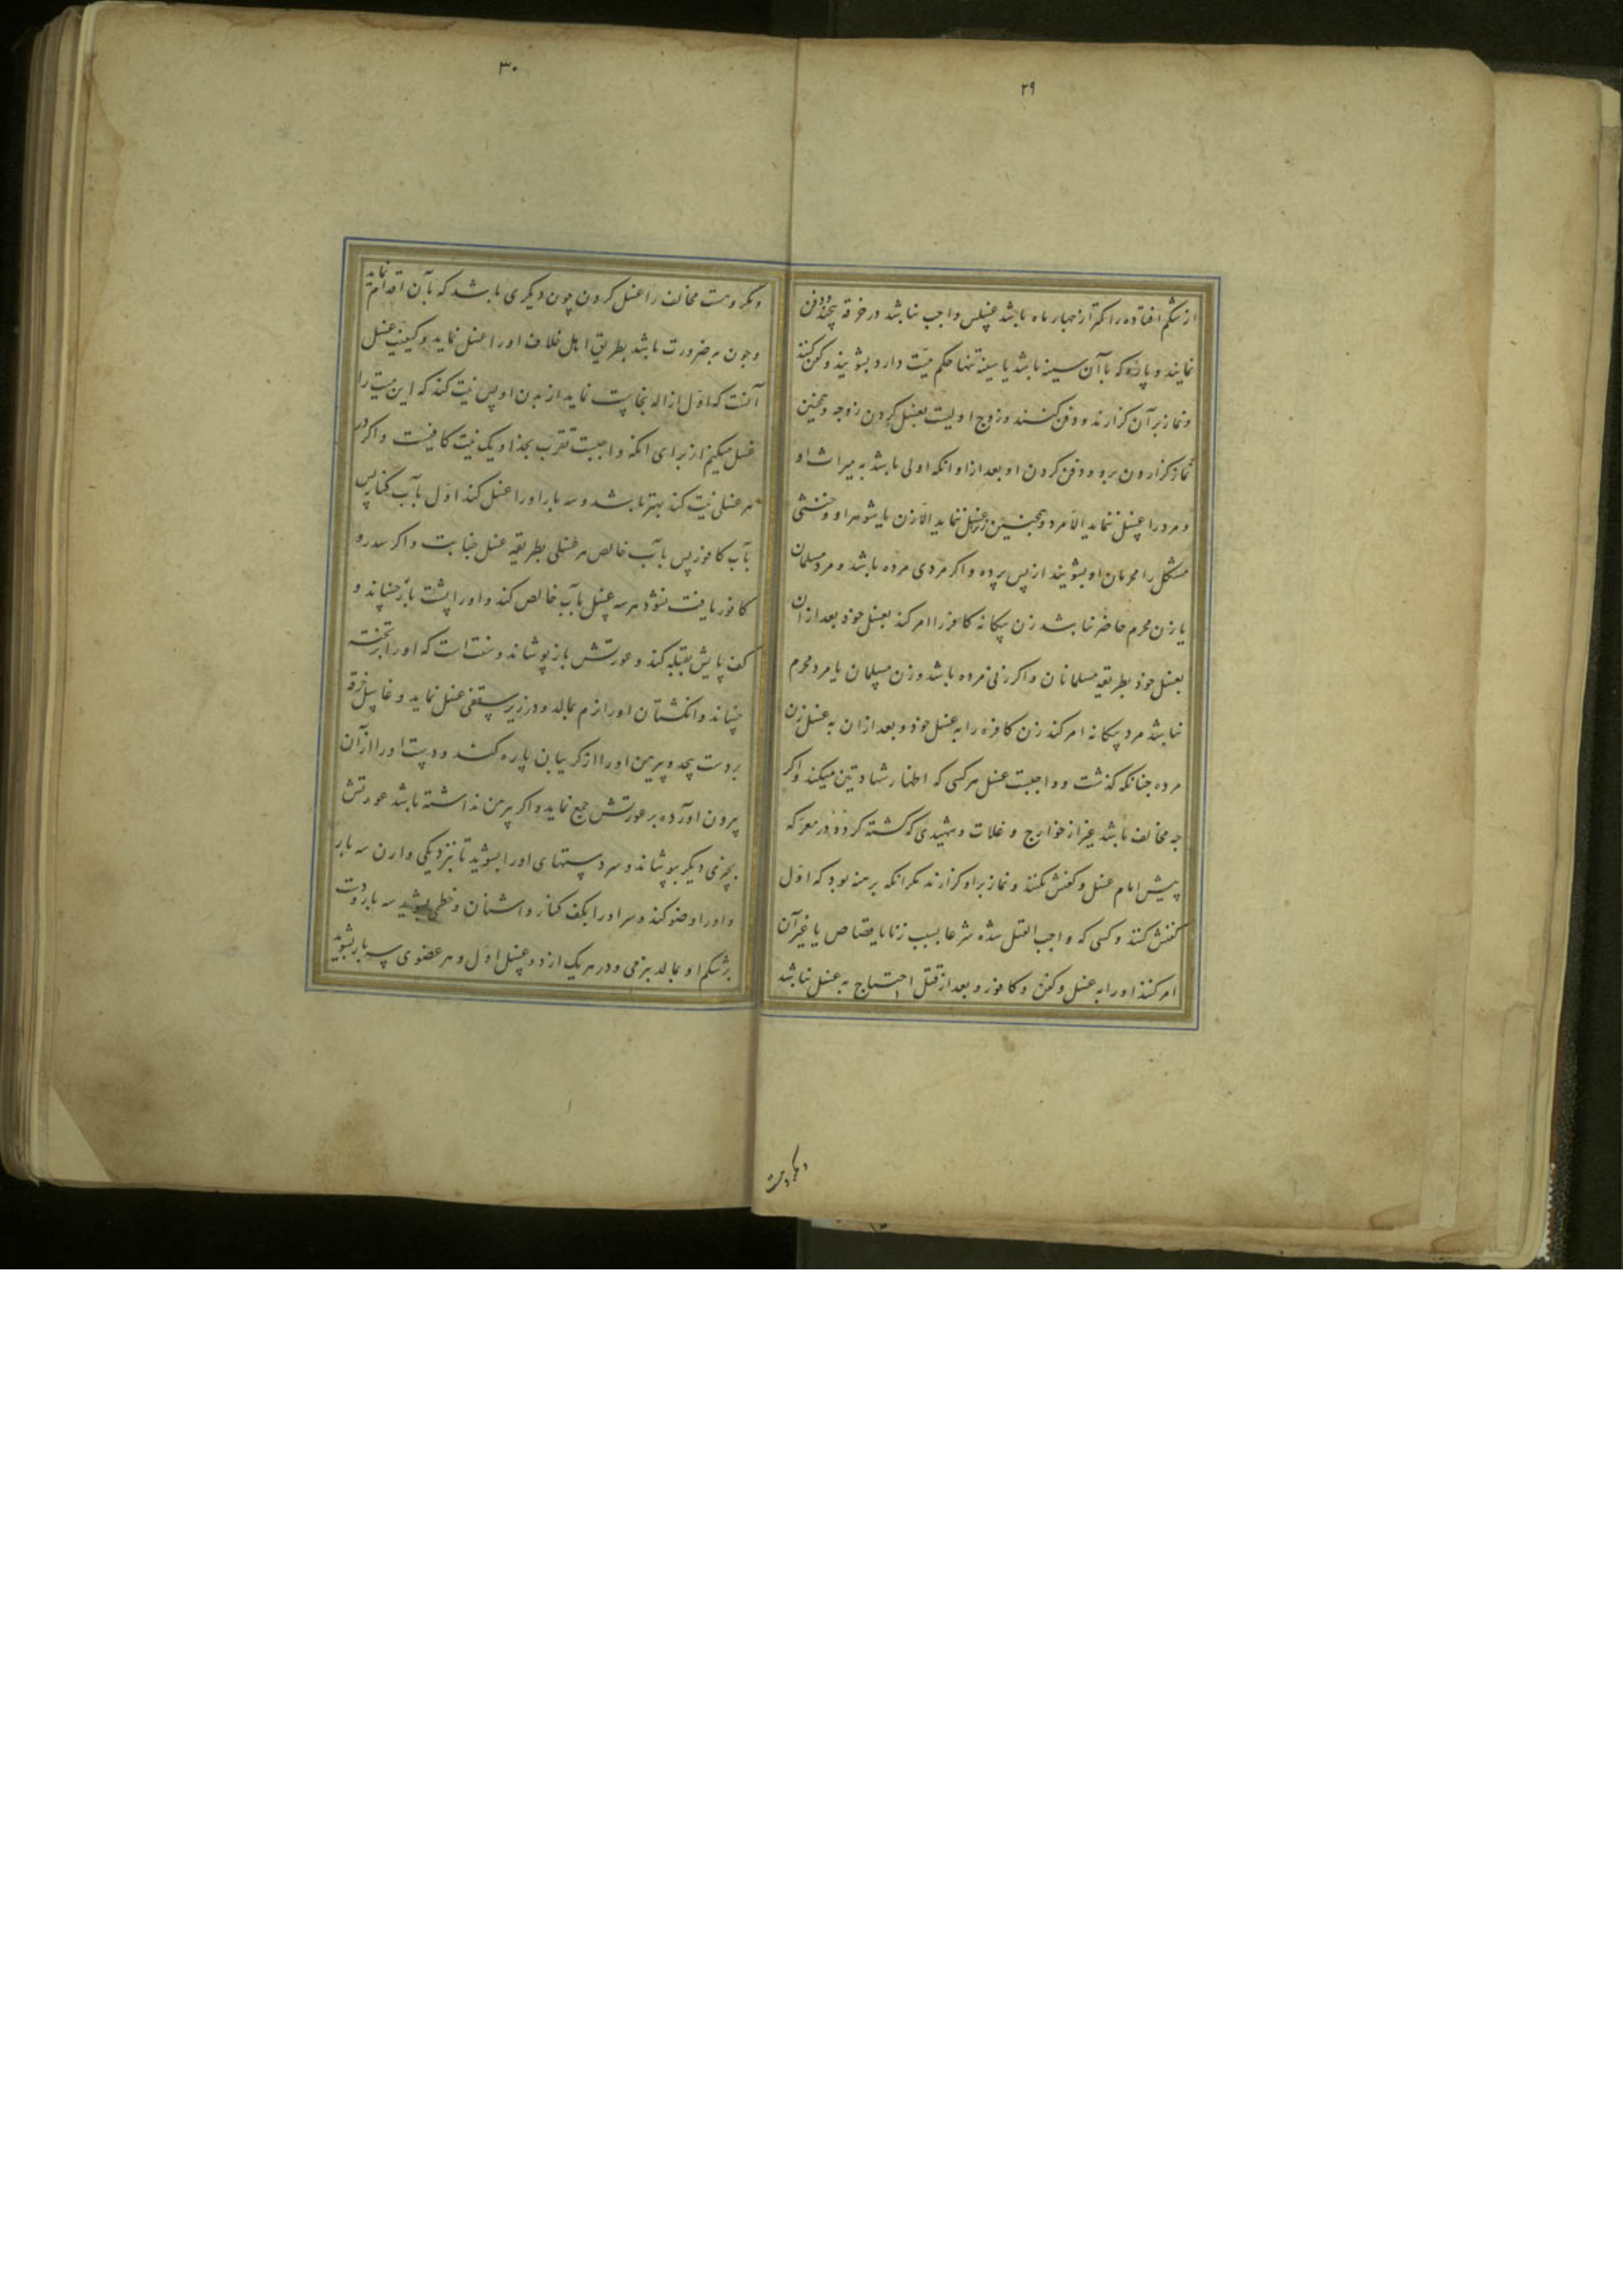 ۲۹
از شکم افتاده را کمتر از چهار ماه باشد غسلش واجب نباشد در خرقه پیچند و دفن
نمایند و پاره که با آن سینه باشد یا سینه تنها حکم میّت دارد بشویند و کفن کنند
و نماز بر آن کزارند و دفن کنند و زوج اولیست بغسل کردن زوجه و همچنین
نماز کزاردن برو و دفن کردن او بعد از او انکه اولی باشد به میراث او
و مرد را غسل ننماید الّا مرد و همچنین زن را غسل ننماید الّا زن یا شوهر او و خنثی
مشکل را محرمان او بشویند از پس پرده و اکر مردی مرده باشد و مرد مسلمان
یا زن محرم حاضر نباشد زن بیکانه کافر را امر کند بغسل خود بعد از آن
بغسل خود بطریقه مسلمانان و اکر زنی مرده باشد و زن مسلمان یا مرد محرم
نباشد مرد بیکانه امر کند زن کافره را به غسل خود و بعد از ان به غسل زن
مرده جنانکه کذشت و واجبست غسل هر کسی که اظهار شهادتین میکند و اکر
جه مخالف باشد غیر از خوارج و غلات و شهیدی که کشته کردد در معرکه
پیش امام غسل و کفنش نکنند و نماز براو کزارند مکر انکه برهنه بود که اوّل
کفنش کنند و کسی که واجب القتل شده شرعا بسبب زنا یا قصاص یا غیر آن
امر کنند او را به غسل و کفن و کافور و بعد از قتل احتیاج به غسل نباشد
ومکروهست
۳۰
ومکروهست مخالف را غسل کردن چون دیکری باشد که بآن اقدام نماید
وجون بضرورت باشد بطریق اهل خلاف او را غسل نماید و کیفیت غسل
آنست که اوّل ازاله نجاست نماید از بدن او پس نیّت کند که این میت را
غسل میکنم از برای انکه واجبست تقرّب بخدا و یک نیّت کافیست و اکر در
هر غسلی نیّت کند بهتر باشد و سه بار او را غسل کند اوّل بآب کنار پس
بآب کافور پس بآب خالص هر غسلی بطریقه غسل جنابت و اکر سدر و
کافور یافت نشود هر سه غسل بآب خالص کند و او را پشت باز خسپاند و
کف پایش بقبله کند و عورتش باز پوشاند و سنّت است که او را بر تخته
خسپاند و انکشتان او را نرم بمالد و در زیر سقفی غسل نماید و غاسل خرقه
بر دست پیچد و پیرهن او را از کریبان پاره کند و دست او را از آن
بیرون آورده بر عورتش جمع نماید و اکر پیرهن نداشته باشد عورتش
بچیزی دیکر بپوشاند و سر دستهای او را بشوید تا بنزدیکی وارن سه بار
و او را وضو کند و سر او را بکف کنار و اشنان و خطمی بشوید سه بار و دست
بر شکم او بمالد بنرمی و در هر یک از دو غسل اوّل و هر عضوی سه بار بشوید